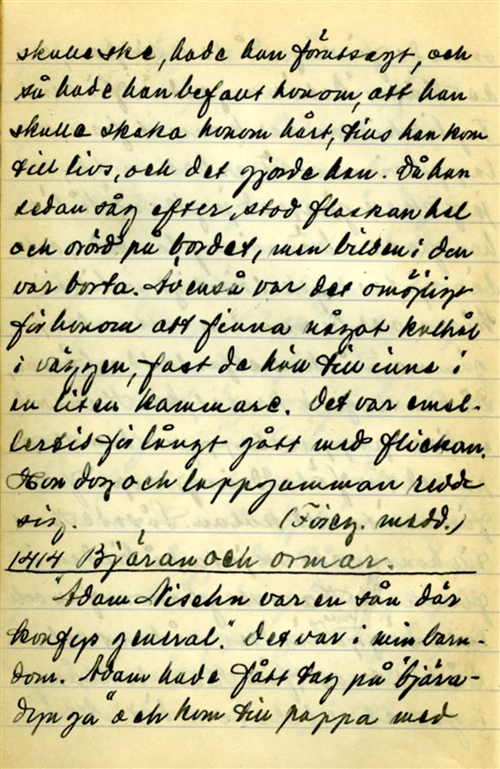 skulle ske, hade han förutsagt, och
så hade han befallt honom, att han
skulle skaka honom hårt, tills han kom
till livs, och det gjorde han. Då han
sedan såg efter, stod flaskan hel
och orörd på bordet, men bilden i den
var borta. Även så var det omöjligt
för honom att finna något kulhål
i väggen, fast de höll till inne i
en liten kammare. Det var emel-
lertid för långt gått med flickan.
Hon dog och lappgumman redde
sig. (Föreg. medd.)
1414 Bjäran och ormar.
"Adam Nisehn var en sån där
konfys general." Det var i min barn-
dom. Adam hade fått tag på "bjära-
dynga" och kom till pappa med